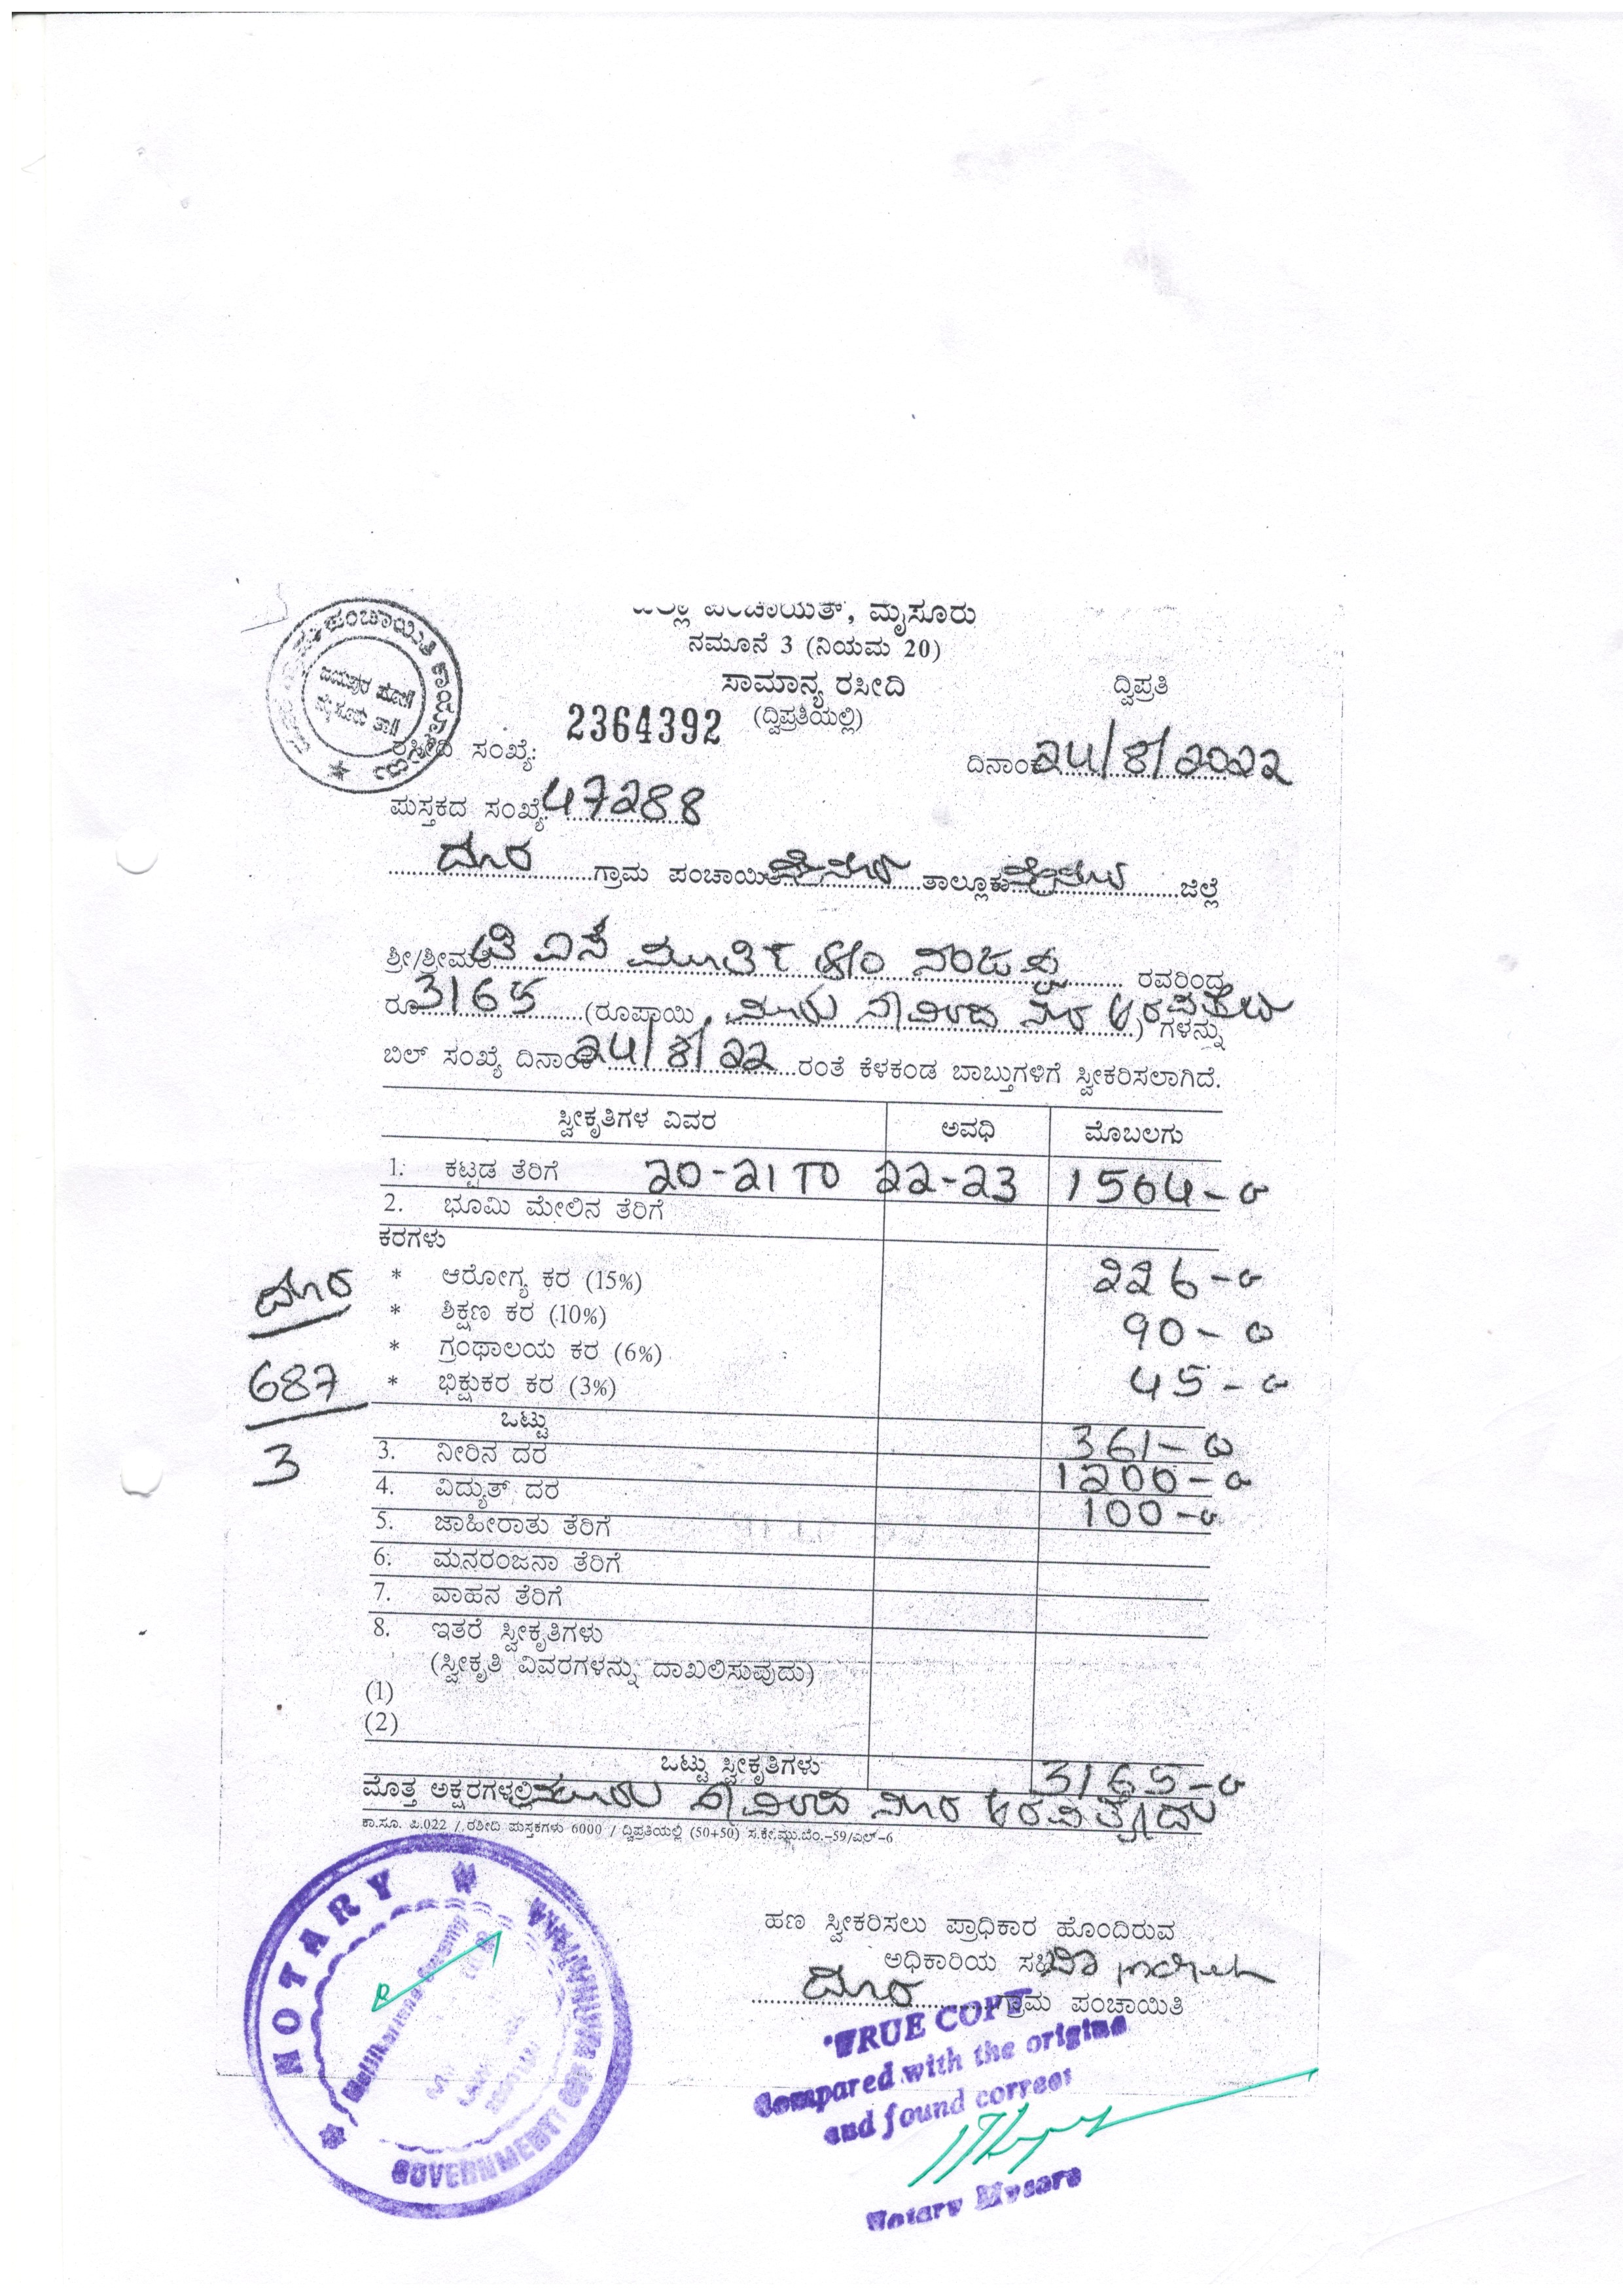 ಪಂಚಾಯಿತ್, ಮೈಸೂರು
ನಮೂನೆ 3 (ನಿಯಮ 20)
ಸಾಮಾನ್ಯ ರಸೀದಿ ದ್ವಿಪ್ರತಿ
2364392 (ದ್ವಿಪ್ರತಿಯಲ್ಲಿ)
ರಸೀದಿ ಸಂಖ್ಯೆ: ದಿನಾಂಕ 24/8/2022
ಪುಸ್ತಕದ ಸಂಖ್ಯೆ: 47288
ದೂರ ಗ್ರಾಮ ಪಂಚಾಯಿತಿ ಮೈಸೂರು ತಾಲ್ಲೂಕು ಮೈಸೂರು ಜಿಲ್ಲೆ
ಶ್ರೀ/ಶ್ರೀಮತಿ ಟಿ ಎಸ್ ಮೂರ್ತಿ S/o ನಂಜಪ್ಪ ರವರಿಂದ
ರೂ 3165 (ರೂಪಾಯಿ ಮೂರು ಸಾವಿರದ ನೂರ ) ಗಳನ್ನು
ಬಿಲ್ ಸಂಖ್ಯೆ ದಿನಾಂಕ 24/8/22 ರಂತೆ ಕೆಳಕಂಡ ಬಾಬ್ತುಗಳಿಗೆ ಸ್ವೀಕರಿಸಲಾಗಿದೆ.
ಸ್ವೀಕೃತಿಗಳ ವಿವರ ಅವಧಿ ಮೊಬಲಗು
1. ಕಟ್ಟಡ ತೆರಿಗೆ 20-21 TO 22-23 1504-0
2. ಭೂಮಿ ಮೇಲಿನ ತೆರಿಗೆ
ಕರಗಳು
* ಆರೋಗ್ಯ ಕರ (15%) 226-0
ದೂರ
* ಶಿಕ್ಷಣ ಕರ (10%) 90-0
* ಗ್ರಂಥಾಲಯ ಕರ (6%)
687
* ಭಿಕ್ಷುಕರ ಕರ (3%) 45-0
ಒಟ್ಟು 361-0
3
3. ನೀರಿನ ದರ 1200-0
4. ವಿದ್ಯುತ್ ದರ 100-0
5. ಜಾಹೀರಾತು ತೆರಿಗೆ
6. ಮನರಂಜನಾ ತೆರಿಗೆ
7. ವಾಹನ ತೆರಿಗೆ
8. ಇತರೆ ಸ್ವೀಕೃತಿಗಳು
(ಸ್ವೀಕೃತಿ ವಿವರಗಳನ್ನು ದಾಖಲಿಸುವುದು)
(1)
(2)
ಒಟ್ಟು ಸ್ವೀಕೃತಿಗಳು 3165-0
ಮೊತ್ತ ಅಕ್ಷರಗಳಲ್ಲಿ ಮೂರು ಸಾವಿರದ ನೂರ ಅರವತ್ತೈದು
ಕಾ.ಸೂ. ಪಿ.022 / ರಶೀದಿ ಪುಸ್ತಕಗಳು 6000 / ದ್ವಿಪ್ರತಿಯಲ್ಲಿ (50+50) ಸ.ಕೇ.ಮು.ಬೆಂ.-59/ಎಲ್-6
ಹಣ ಸ್ವೀಕರಿಸಲು ಪ್ರಾಧಿಕಾರ ಹೊಂದಿರುವ
ಅಧಿಕಾರಿಯ ಸಹಿ
ದೂರ ಗ್ರಾಮ ಪಂಚಾಯಿತಿ
NOTARY
GOVERNMENT OF
TRUE COPY
Compared with the original
and found correct
Notary Mysore